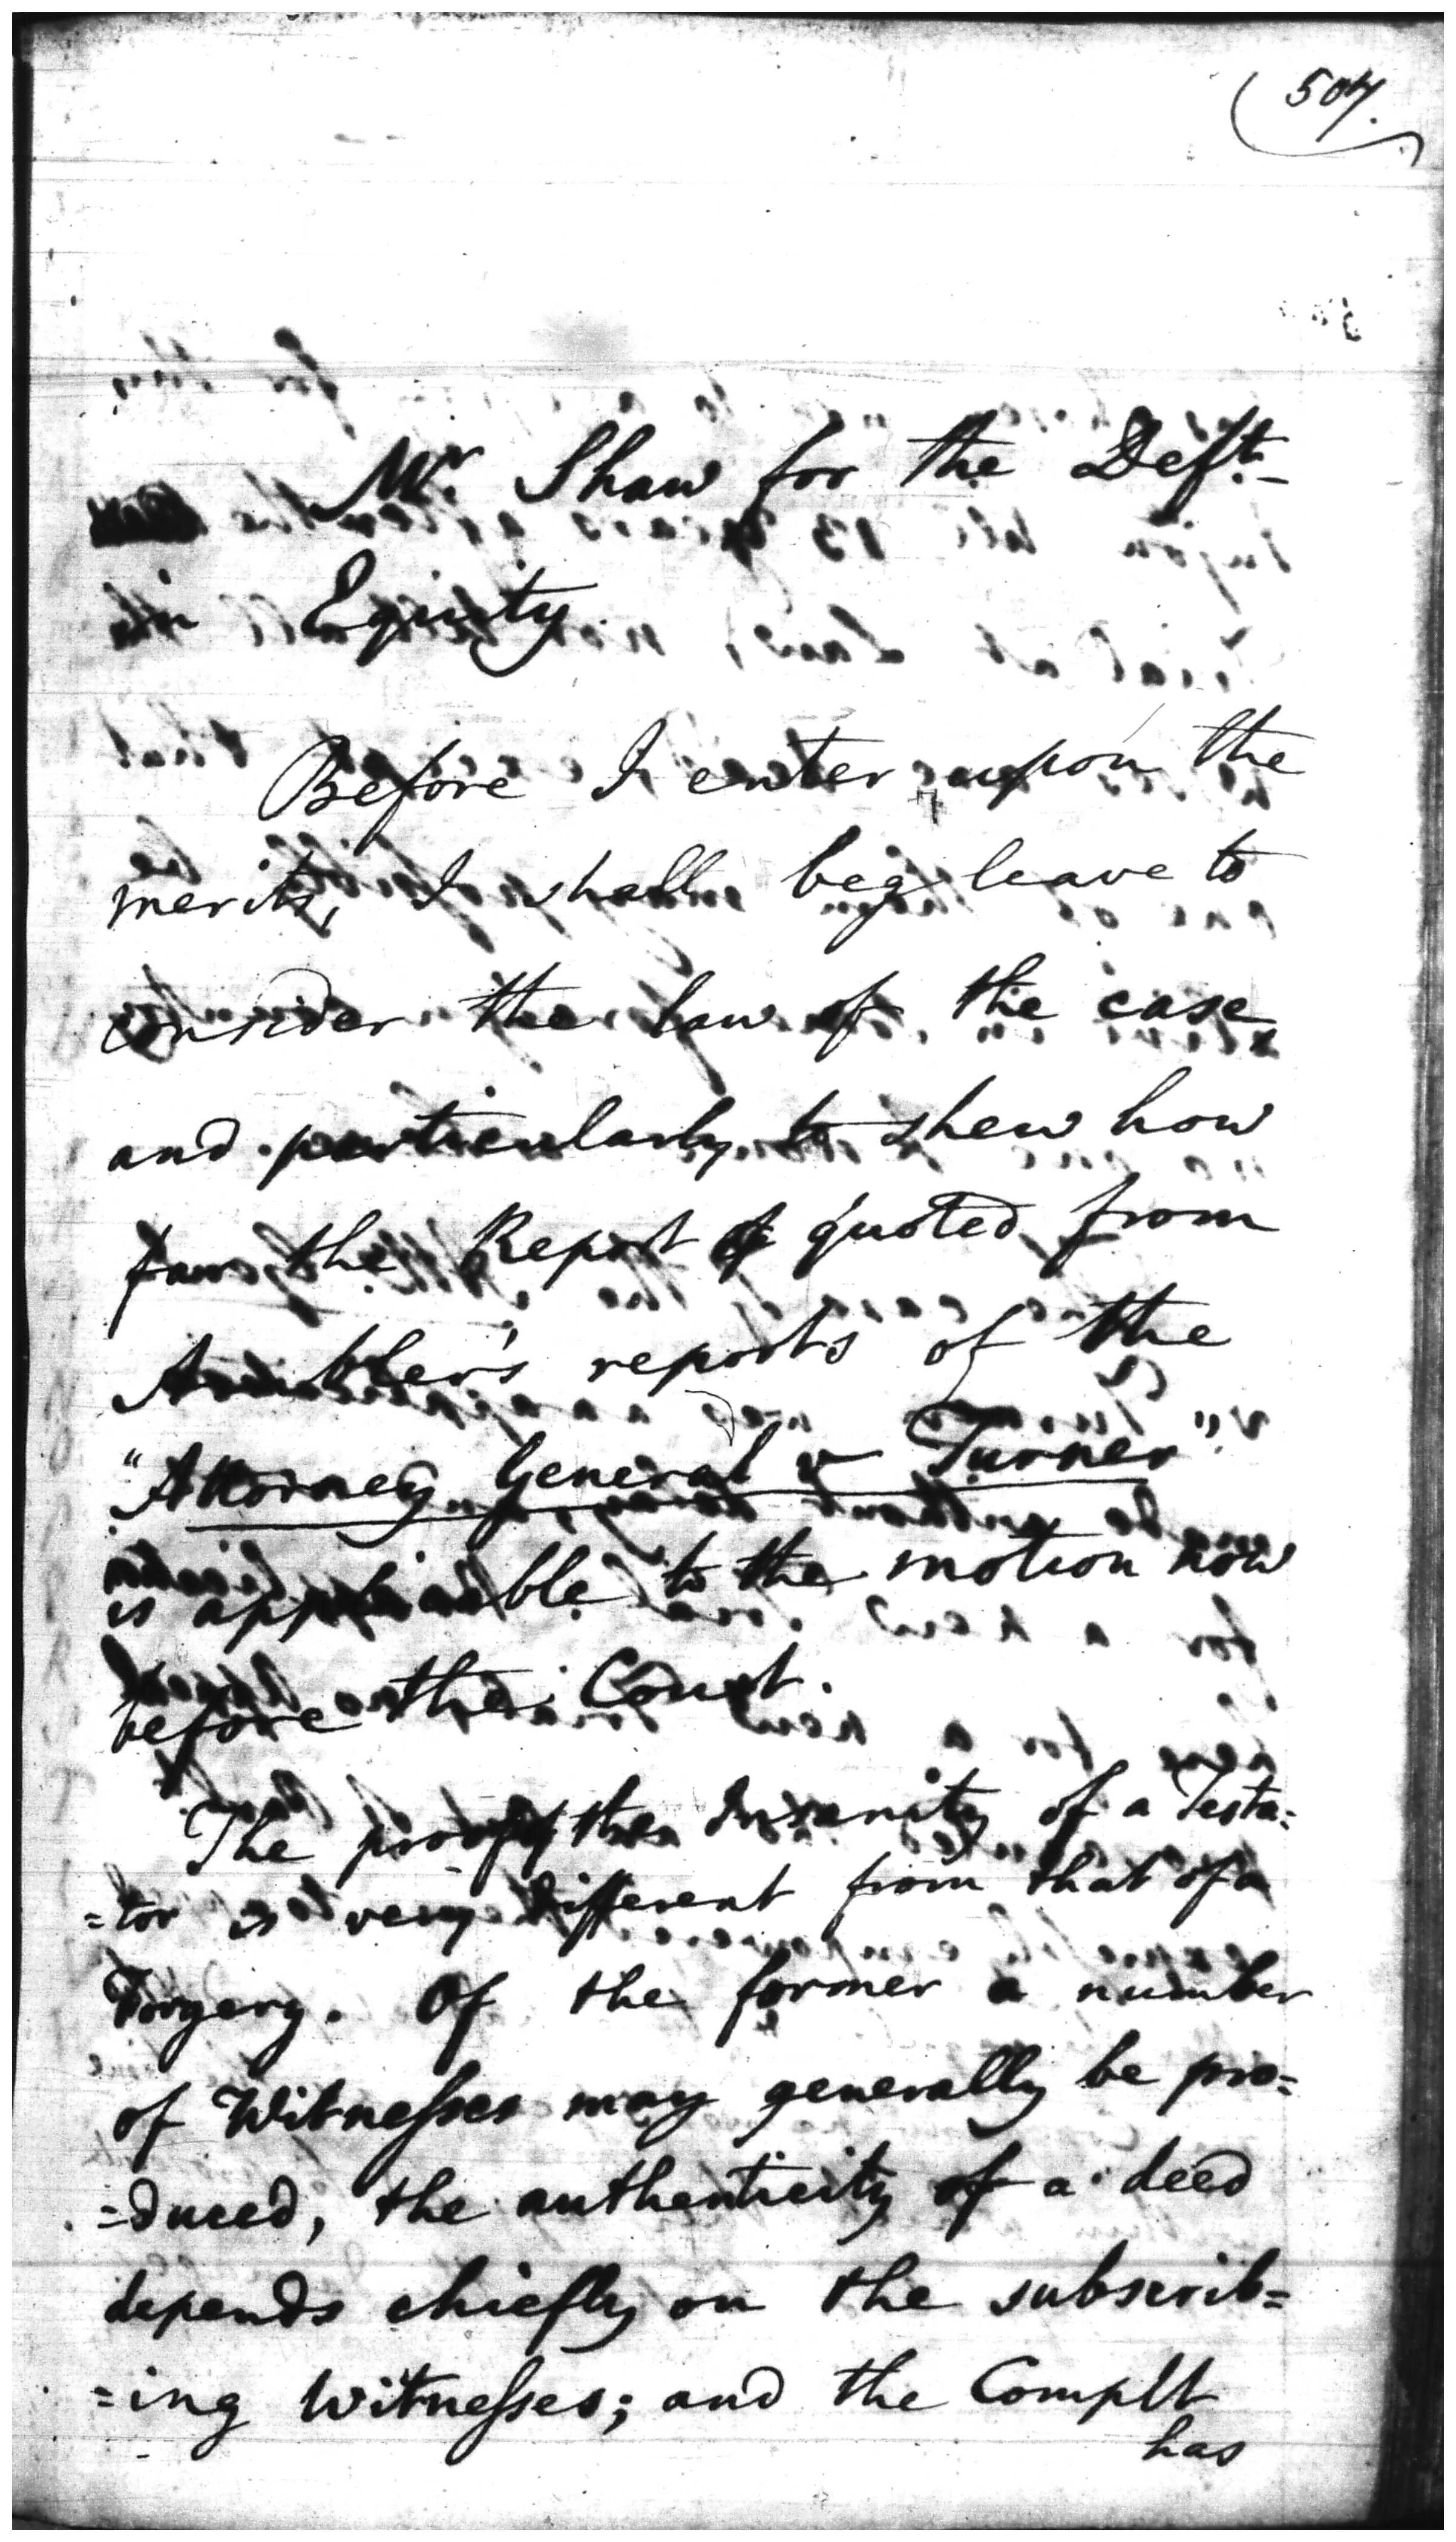 507.
Mr. Shaw for the Deft.
in Equity
Before I enter upon the
merits, I shall beg leave to
consider the law of the case
and particularly to shew how
far the Report quoted from
Ambler's reports of the
"Attorney General v Turner"
is applicable to the motion now
before the Court.
The proof of the Insanity of a Testa=
=tor is very different from that of a
Forgery. Of the former a number
of Witnesses may generally be pro=
=duced, the authenticity of a deed
depends chiefly on the subscrib=
=ing Witnesses; and the Complt
has